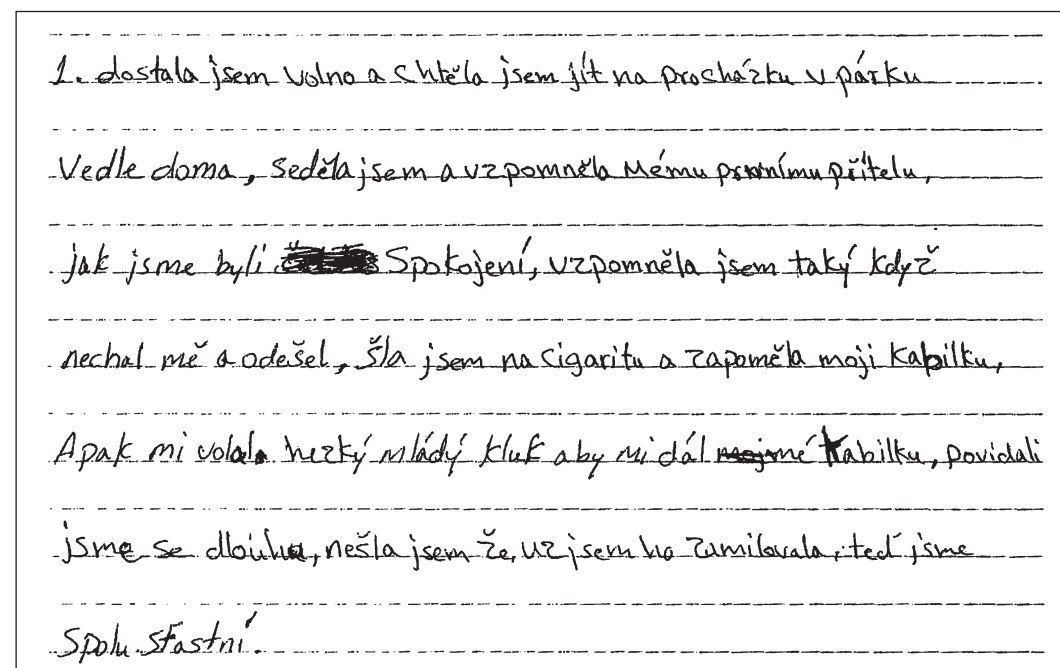 1. dostala jsem volno a chtěla jsem jít na procházku v párku
Vedle doma, seděla jsem a vzpomněla mému prvnímu přítelu,
jak jsme byli Spokojení, vzpomněla jsem taký když
nechal mě a odešel, šla jsem na cigaritu a zapoměla moji kabilku,
A pak mi volala hezký mládý kluk aby mi dál mé kabilku, povidali
jsme se dlouhu, nešla jsem že, uz jsem ho zamilovala, teď jsme
spolu sťastní.